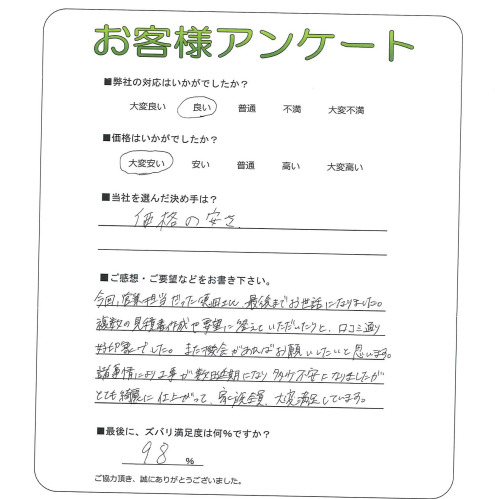 お客様アンケート
■弊社の対応はいかがでしたか?
大変良い 良い 普通 不満 大変不満
■価格はいかがでしたか?
大変安い 安い 普通 高い 大変高い
■当社を選んだ決め手は?
価格の安さ
■ご感想・ご要望などをお書き下さい。
今回、営業担当だった 最後までお世話になりました。
複数の見積書作成や要望に答えていただいたりと、口コミ通り
好印象でした。また機会があればお願いしたいと思います。
諸事情により工事が数回延期になり 不安になりましたが
とても綺麗に仕上がって、家族全員、大変満足しています。
■最後に、ズバリ満足度は何%ですか?
98 %
ご協力頂き、誠にありがとうございました。